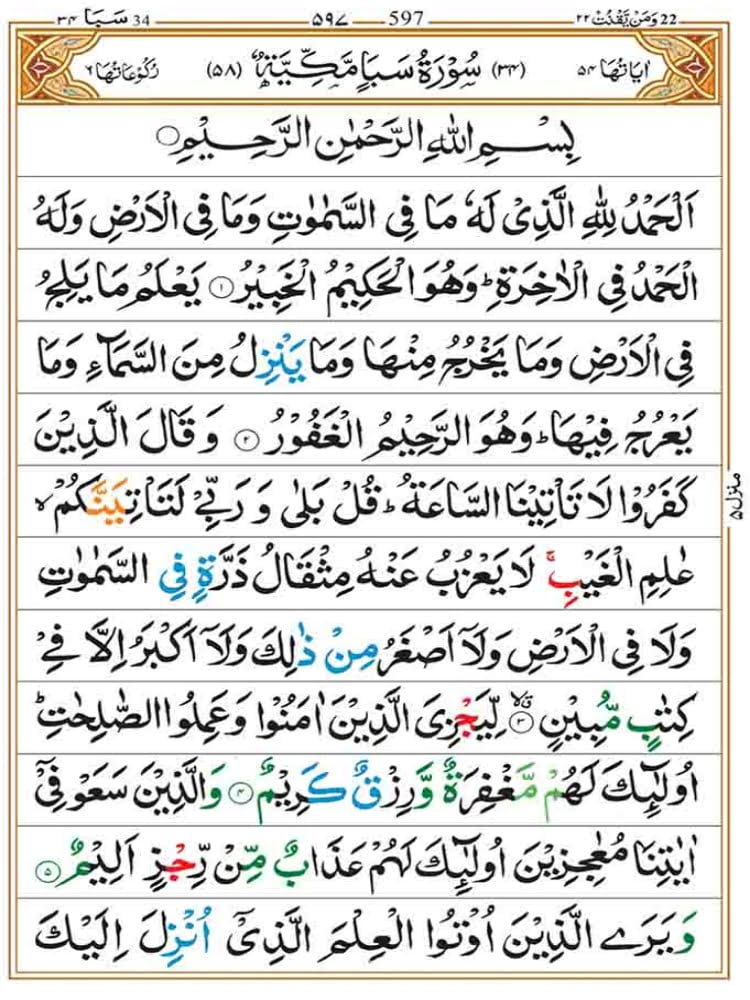 سَبَا 34 ٣٤ ٥٩٧ 597 وَمَنْ يَّقْنُتْ 22 ٢٢
اٰيَاتُهَا ٥٤ (٣٤) سُوْرَةُ سَبَاٍ مَّكِّيَّةٌ (٥٨) رُكُوْعَاتُهَا ٦
بِسْمِ اللّٰهِ الرَّحْمٰنِ الرَّحِيْمِ ○
اَلْحَمْدُ لِلّٰهِ الَّذِىْ لَهٗ مَا فِى السَّمٰوٰتِ وَمَا فِى الْاَرْضِ وَلَهُ
الْحَمْدُ فِى الْاٰخِرَةِ ؕ وَهُوَ الْحَكِيْمُ الْخَبِيْرُ ۝١ يَعْلَمُ مَا يَلِجُ
فِى الْاَرْضِ وَمَا يَخْرُجُ مِنْهَا وَمَا يَنْزِلُ مِنَ السَّمَآءِ وَمَا
يَعْرُجُ فِيْهَا ؕ وَهُوَ الرَّحِيْمُ الْغَفُوْرُ ۝٢ وَقَالَ الَّذِيْنَ
كَفَرُوْا لَا تَاْتِيْنَا السَّاعَةُ ؕ قُلْ بَلٰى وَرَبِّىْ لَتَاْتِيَنَّكُمْ ۙ
عٰلِمِ الْغَيْبِ ۚ لَا يَعْزُبُ عَنْهُ مِثْقَالُ ذَرَّةٍ فِى السَّمٰوٰتِ
وَلَا فِى الْاَرْضِ وَلَاۤ اَصْغَرُ مِنْ ذٰلِكَ وَلَاۤ اَكْبَرُ اِلَّا فِىْ
كِتٰبٍ مُّبِيْنٍ ۝٣ لِّيَجْزِىَ الَّذِيْنَ اٰمَنُوْا وَعَمِلُوا الصّٰلِحٰتِ ؕ
اُولٰٓئِكَ لَهُمْ مَّغْفِرَةٌ وَّرِزْقٌ كَرِيْمٌ ۝٤ وَالَّذِيْنَ سَعَوْ فِىْۤ
اٰيٰتِنَا مُعٰجِزِيْنَ اُولٰٓئِكَ لَهُمْ عَذَابٌ مِّنْ رِّجْزٍ اَلِيْمٌ ۝٥
وَيَرَى الَّذِيْنَ اُوْتُوا الْعِلْمَ الَّذِىْۤ اُنْزِلَ اِلَيْكَ
مَنْزِل ٥